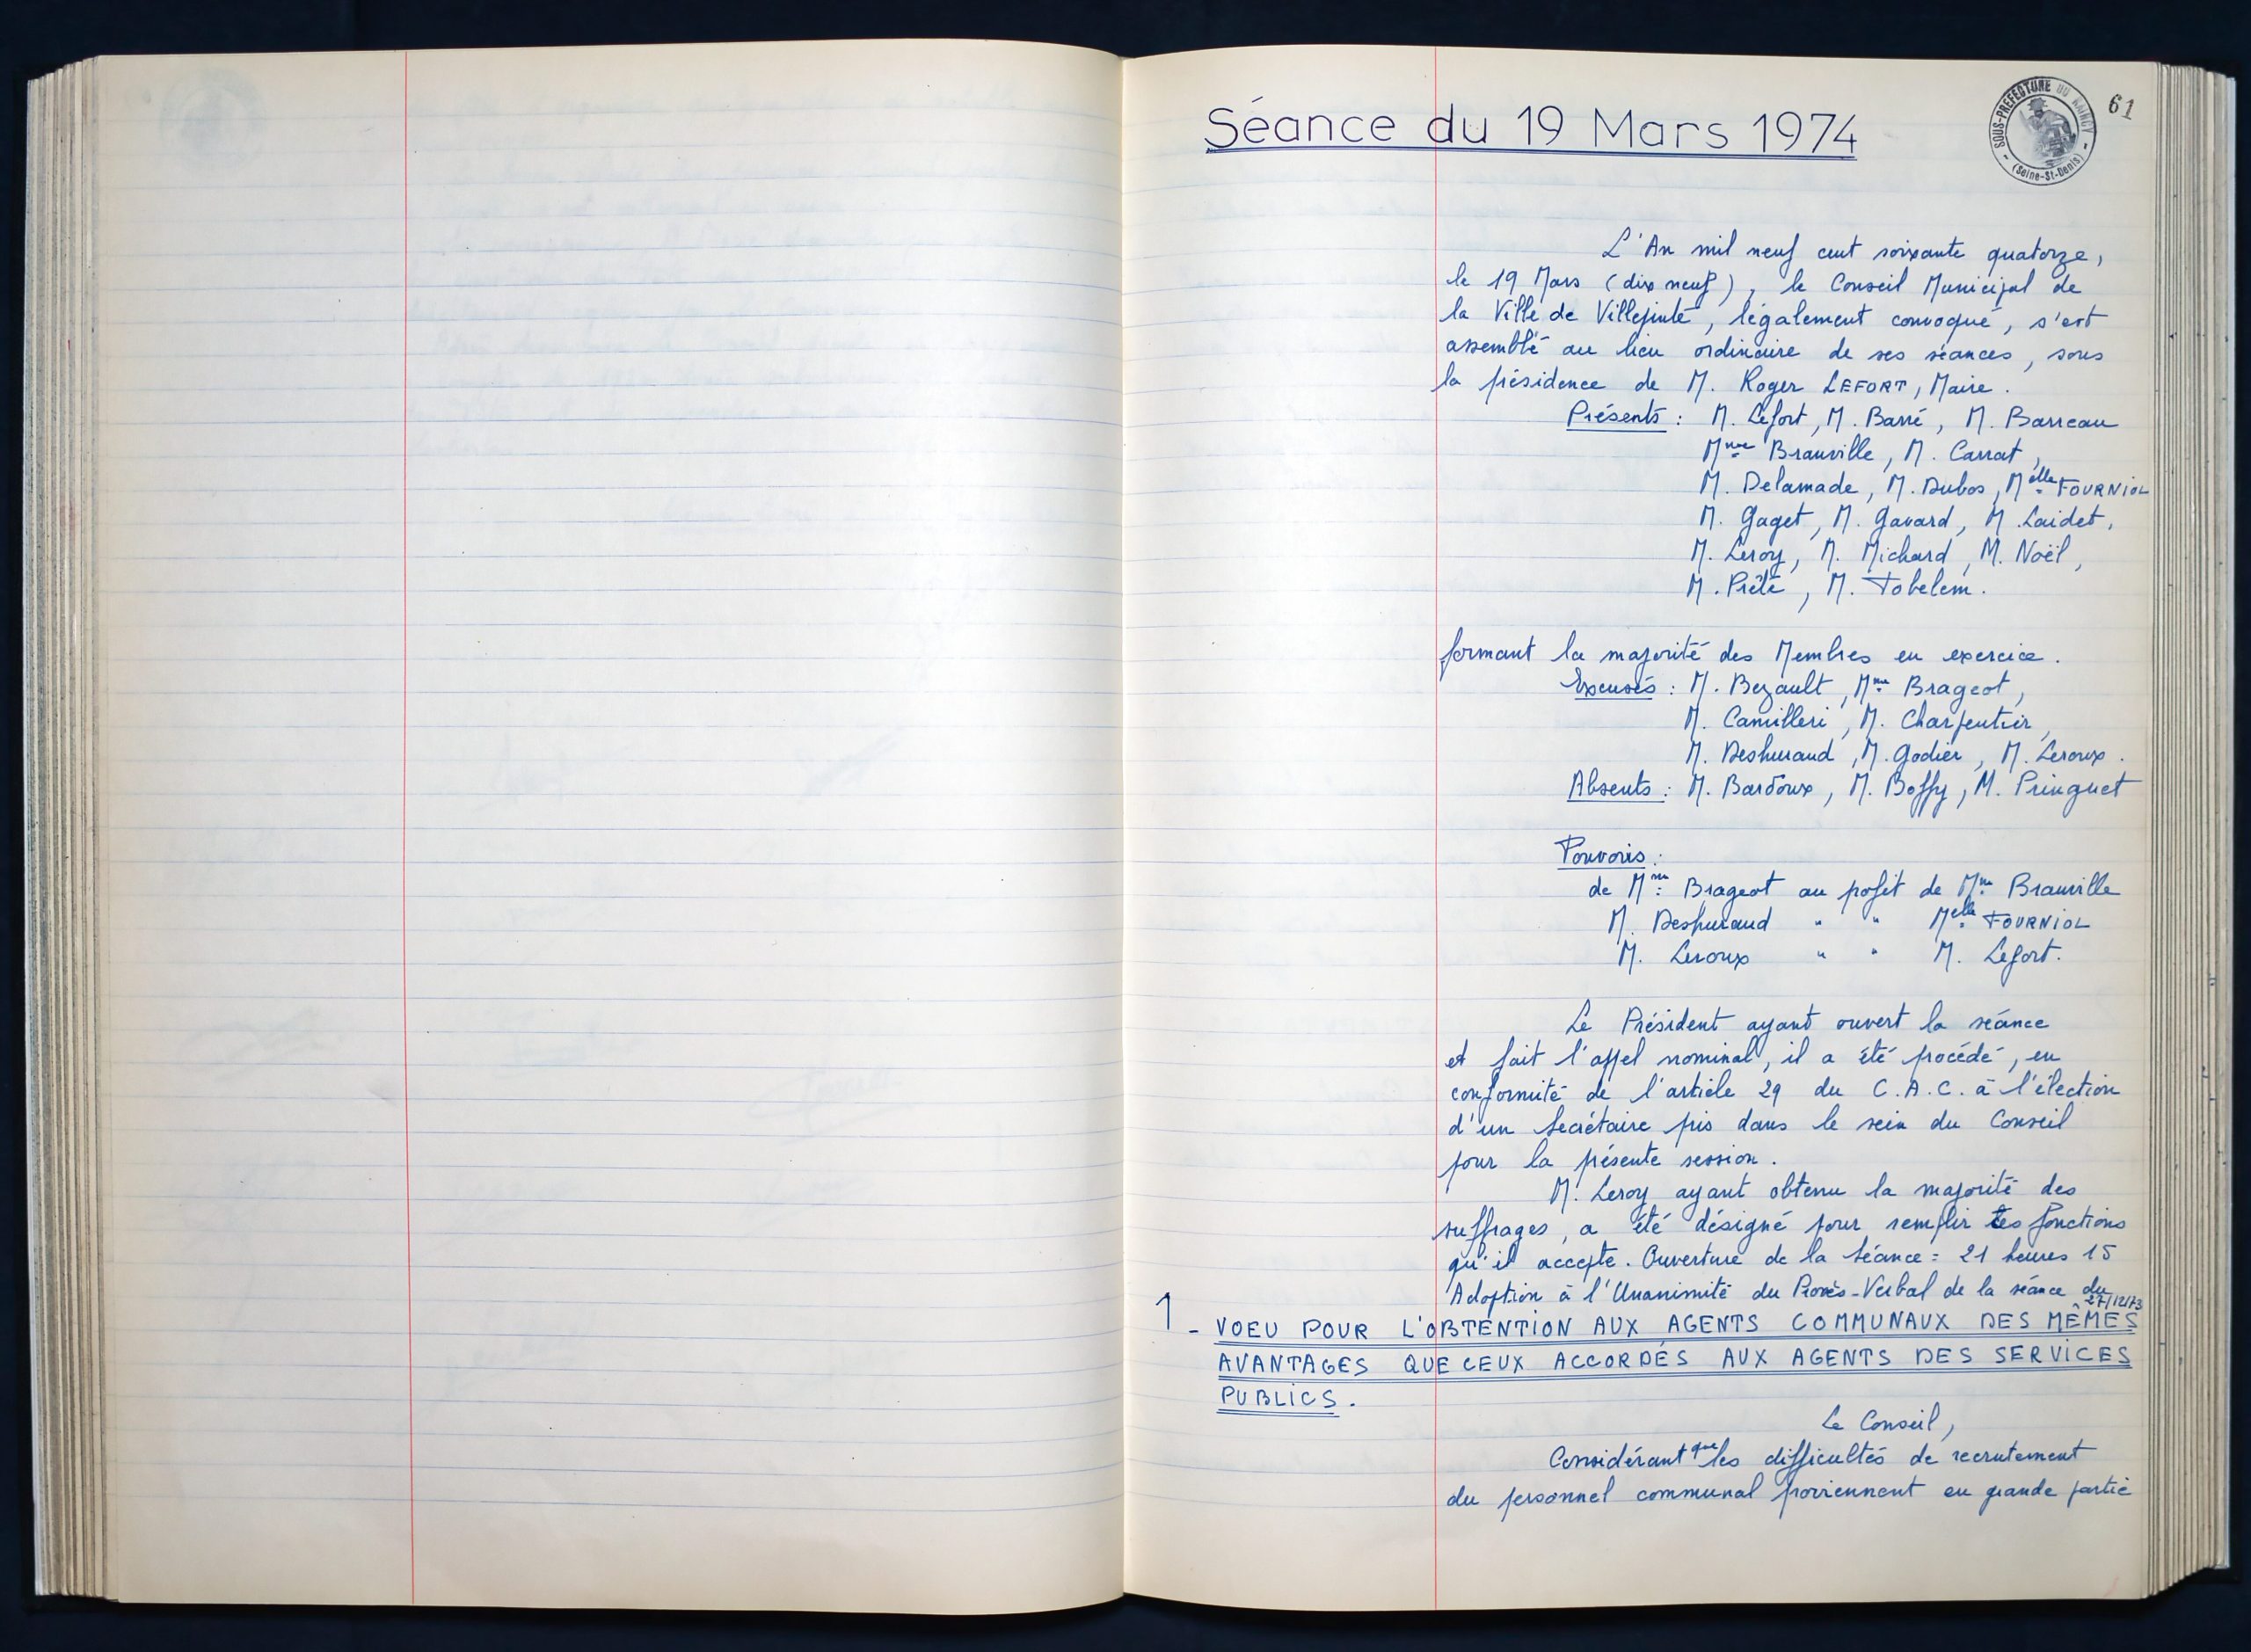 Séance du 19 Mars 1974
SOUS-PREFECTURE DU RAINCY
(Seine-St-Denis)
61
L'An mil neuf cent soixante quatorze,
le 19 Mars (dix neuf), le Conseil Municipal de
la Ville de Villepinte, légalement convoqué, s'est
assemblé au lieu ordinaire de ses séances, sous
la présidence de M. Roger LEFORT, Maire.
Présents : M. Lefort, M. Barré, M. Barreau
Mme Brauville, M. Carrat,
M. Delamade, M. Dubos, Melle FOURNIOL
M. Gaget, M. Gavard, M. Laidet,
M. Leroy, M. Michard, M. Noël,
M. Piété, M. Tobelem.
formant la majorité des Membres en exercice.
Excusés : M. Bezault, Mme Brageot,
M. Camilleri, M. Charpentier,
M. Despuraud, M. Godier, M. Leroux.
Absents : M. Bardoux, M. Boffy, M. Pringuet
Pouvoirs :
de Mme Brageot au profit de Mme Brauville
M. Despuraud " " Melle FOURNIOL
M. Leroux " " M. Lefort.
Le Président ayant ouvert la séance
et fait l'appel nominal, il a été procédé, en
conformité de l'article 29 du C.A.C. à l'élection
d'un Secrétaire pris dans le sein du Conseil
pour la présente session.
M. Leroy ayant obtenu la majorité des
suffrages, a été désigné pour remplir les fonctions
qu'il accepte. Ouverture de la Séance : 21 heures 15
Adoption à l'Unanimité du Procès-Verbal de la séance du 27/12/73
1 - VOEU POUR L'OBTENTION AUX AGENTS COMMUNAUX DES MÊMES
AVANTAGES QUE CEUX ACCORDÉS AUX AGENTS DES SERVICES
PUBLICS.
Le Conseil,
Considérant que les difficultés de recrutement
du personnel communal proviennent en grande partie